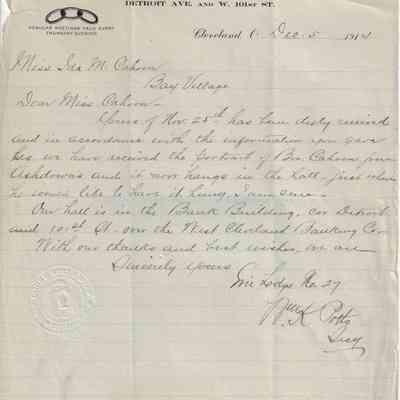 DETROIT AVE. AND W. 101ST ST.
REGULAR MEETINGS HELD EVERY
THURSDAY EVENING
Cleveland O. Dec. 5 1914
Miss Ida M. Cahoon
Bay Village
Dear Miss Cahoon -
Yours of Nov. 25th has been duly received
and in accordance with the information you gave
us we have received the portrait of Bro. Cahoon from
Ashdowns and it now hangs in the hall - just where
he would like to have it hung, I am sure -
Our hall is in the Bank Building, cor Detroit
and 101st St - over the West Cleveland Banking Co.
With our thanks and best wishes, we are
Sincerely yours
Lodge No. 27
Wm K. Potts
Secy